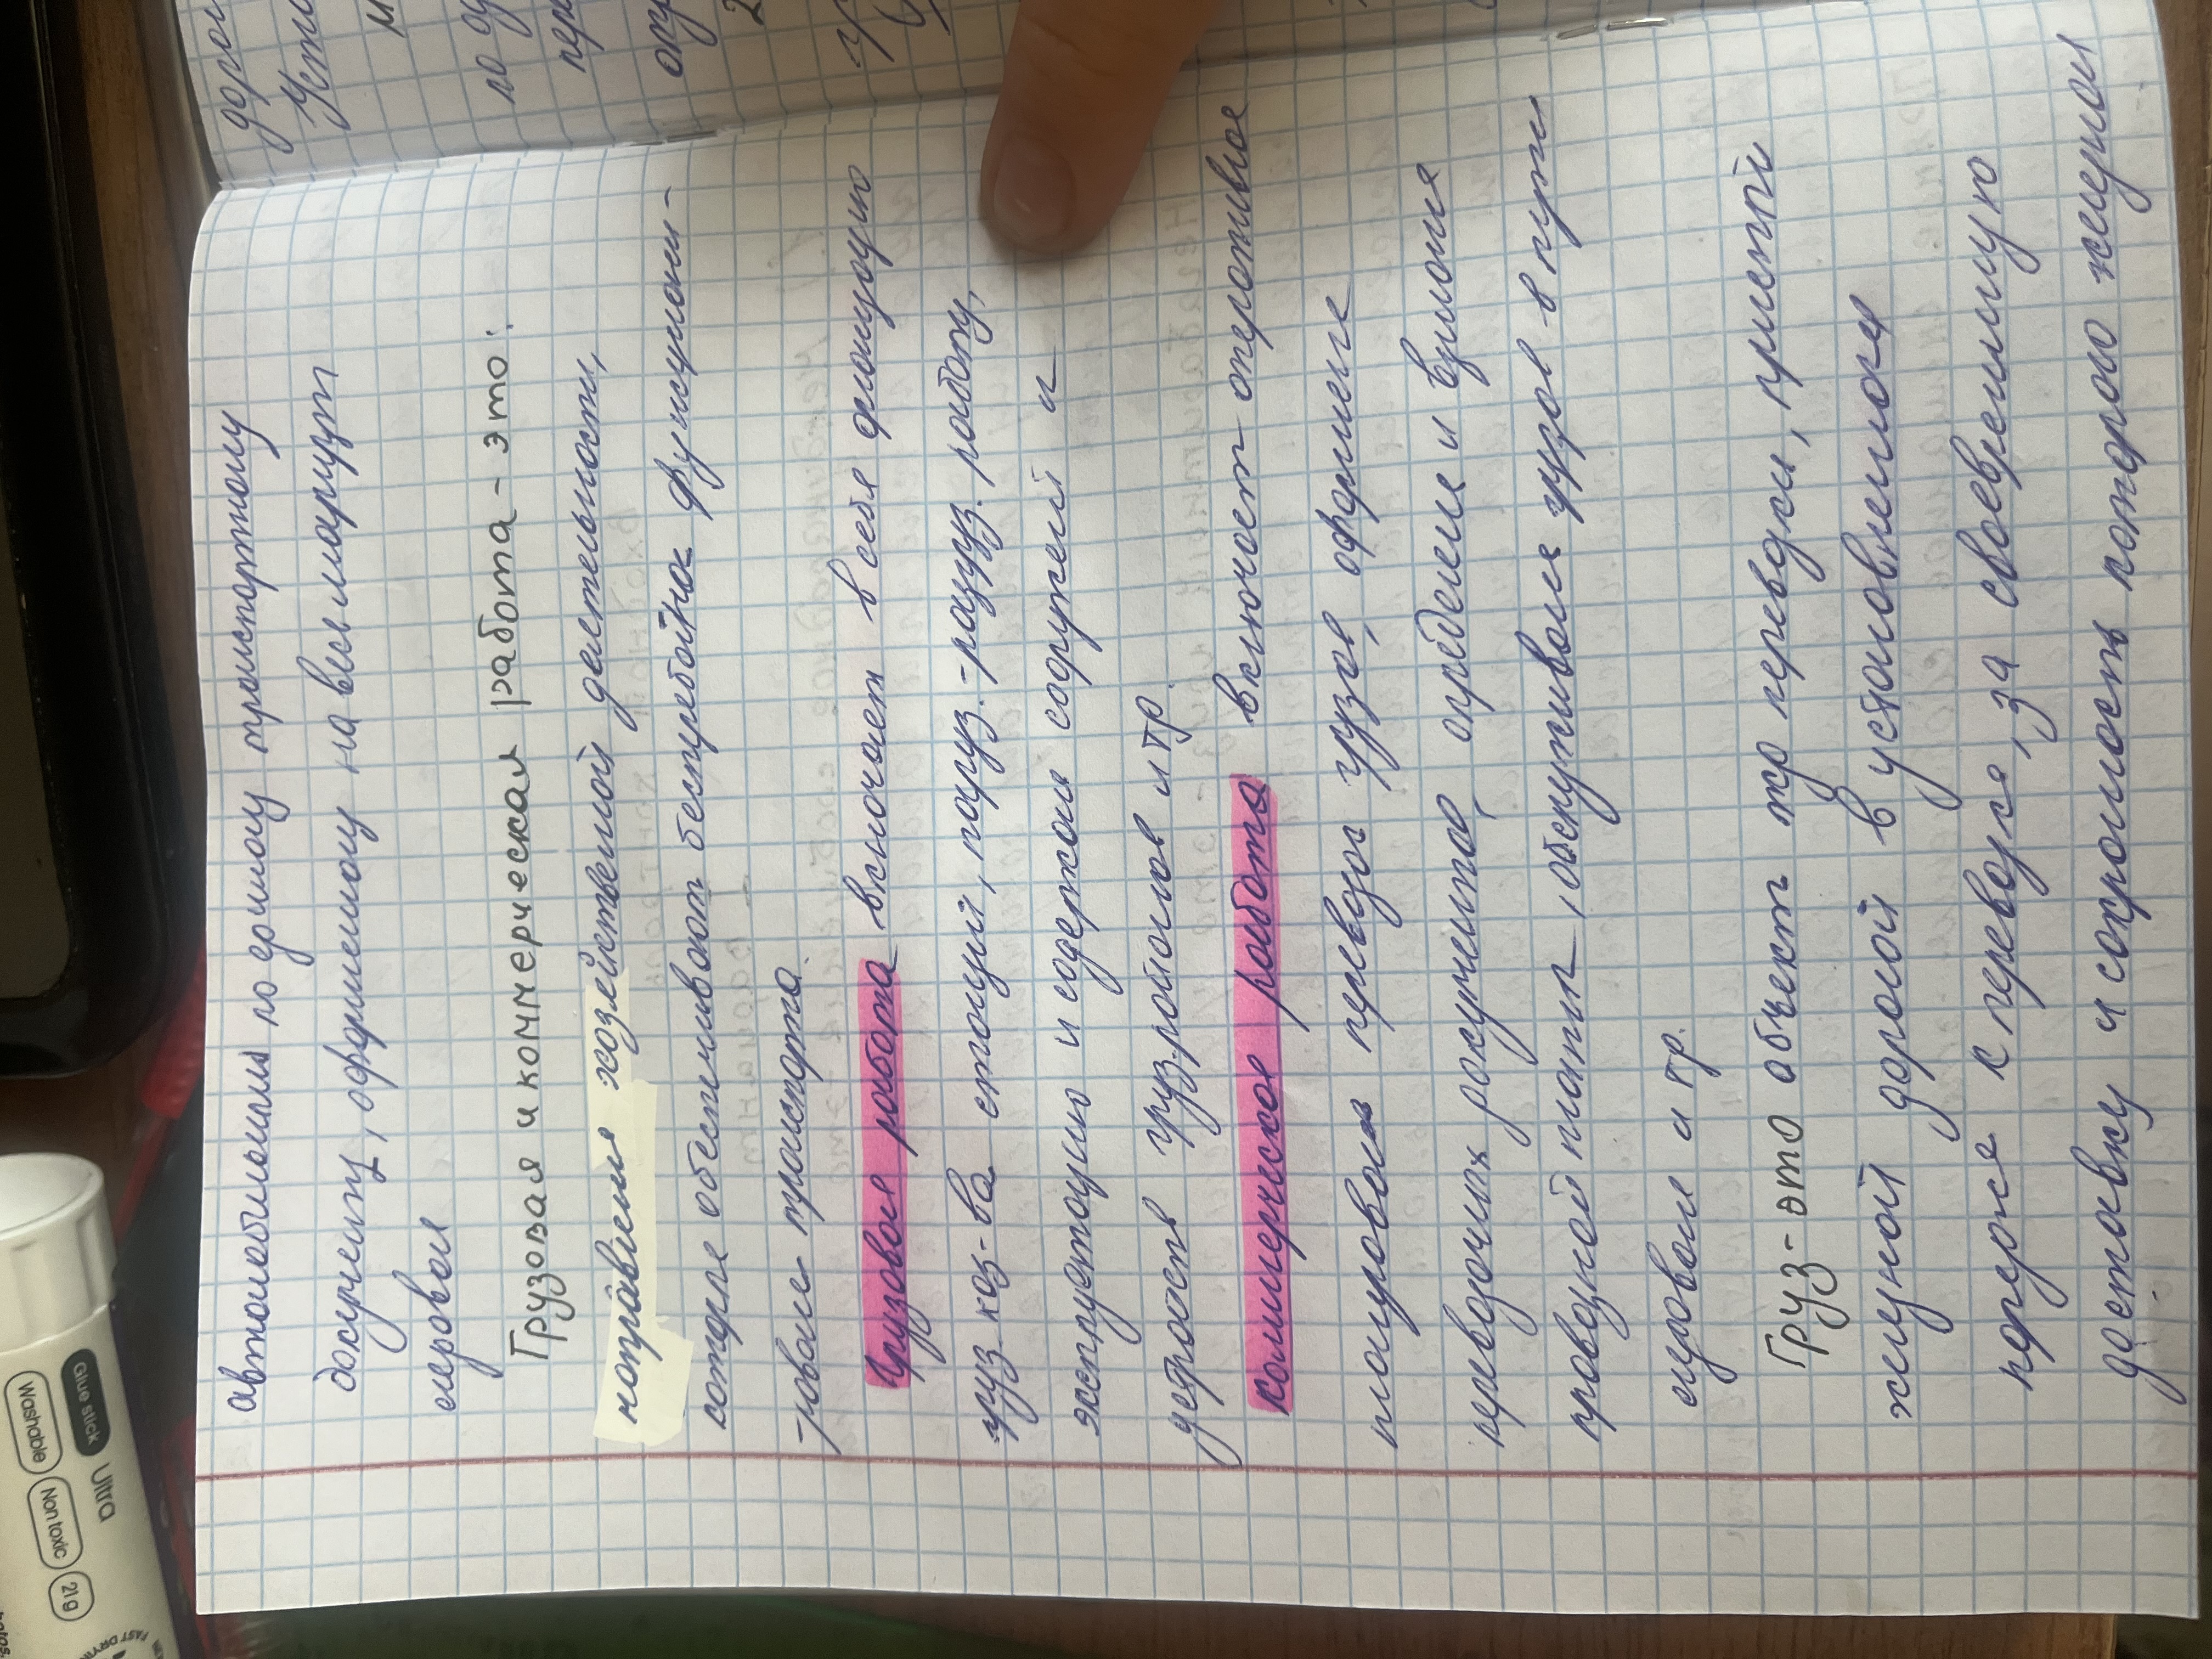 автомобильным по единому транспортному
документу, оформленому на весь маршрут
следования
Грузовая и коммерческая работа - это:
направления хозяйственной деятельности,
которые обеспечивают бесперебойное функциони-
рование транспорта.
Грузовая работа включает в себя эксплуатацию
груз. хоз-ва станций, погруз.-разгруз. работу,
эксплуатацию и содержан сооружений и
устройств груз.районов и тр.
коммерческая работа включает оперативное
планирован перевозок грузов, оформление
перевозочных документов, определение и взимание
провозной платы, обслуживание грузов в пути
следован и тр.
Груз - это объект жд перевозки, принятый
железной дорогой в установленном
порядке к перевозке, за своевременную
доставку и сохранность которого железная
Glue stick
Washable
Non toxic
21g
Ultra
FAST DRYIN